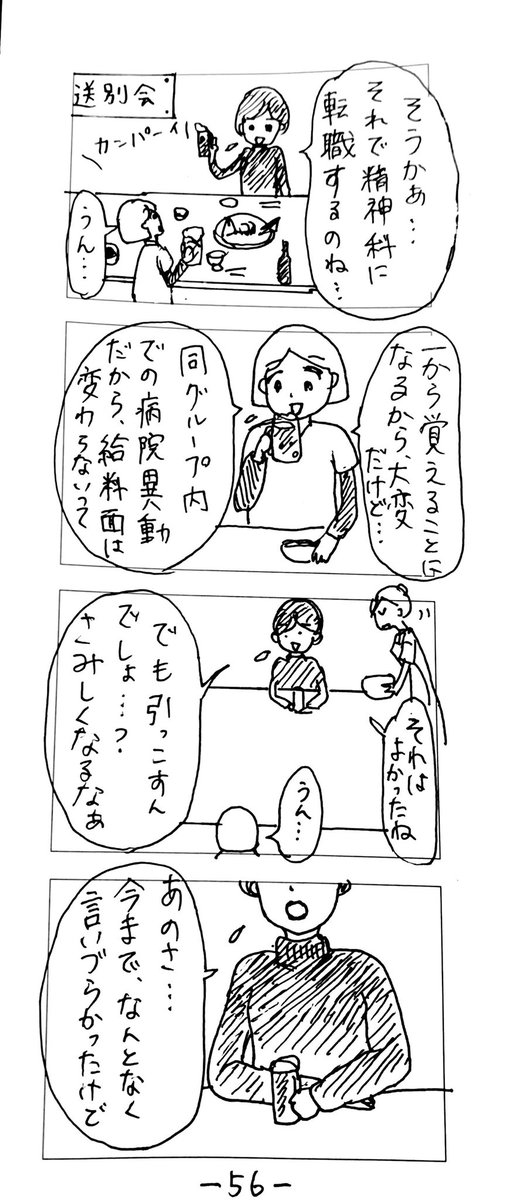 送別会
そうかぁ…
それで精神科に
転職するのね…
カンパーイ
うん…
一から覚えることに
なるから、大変
だけど…
同グループ内
での病院異動
だから、給料面は
変わらないって
それは
よかったね
でも引っこすん
でしょ…?
さみしくなるなぁ
うん…
あのさ…
今まで、なんとなく
言いづらかったけど
-56-